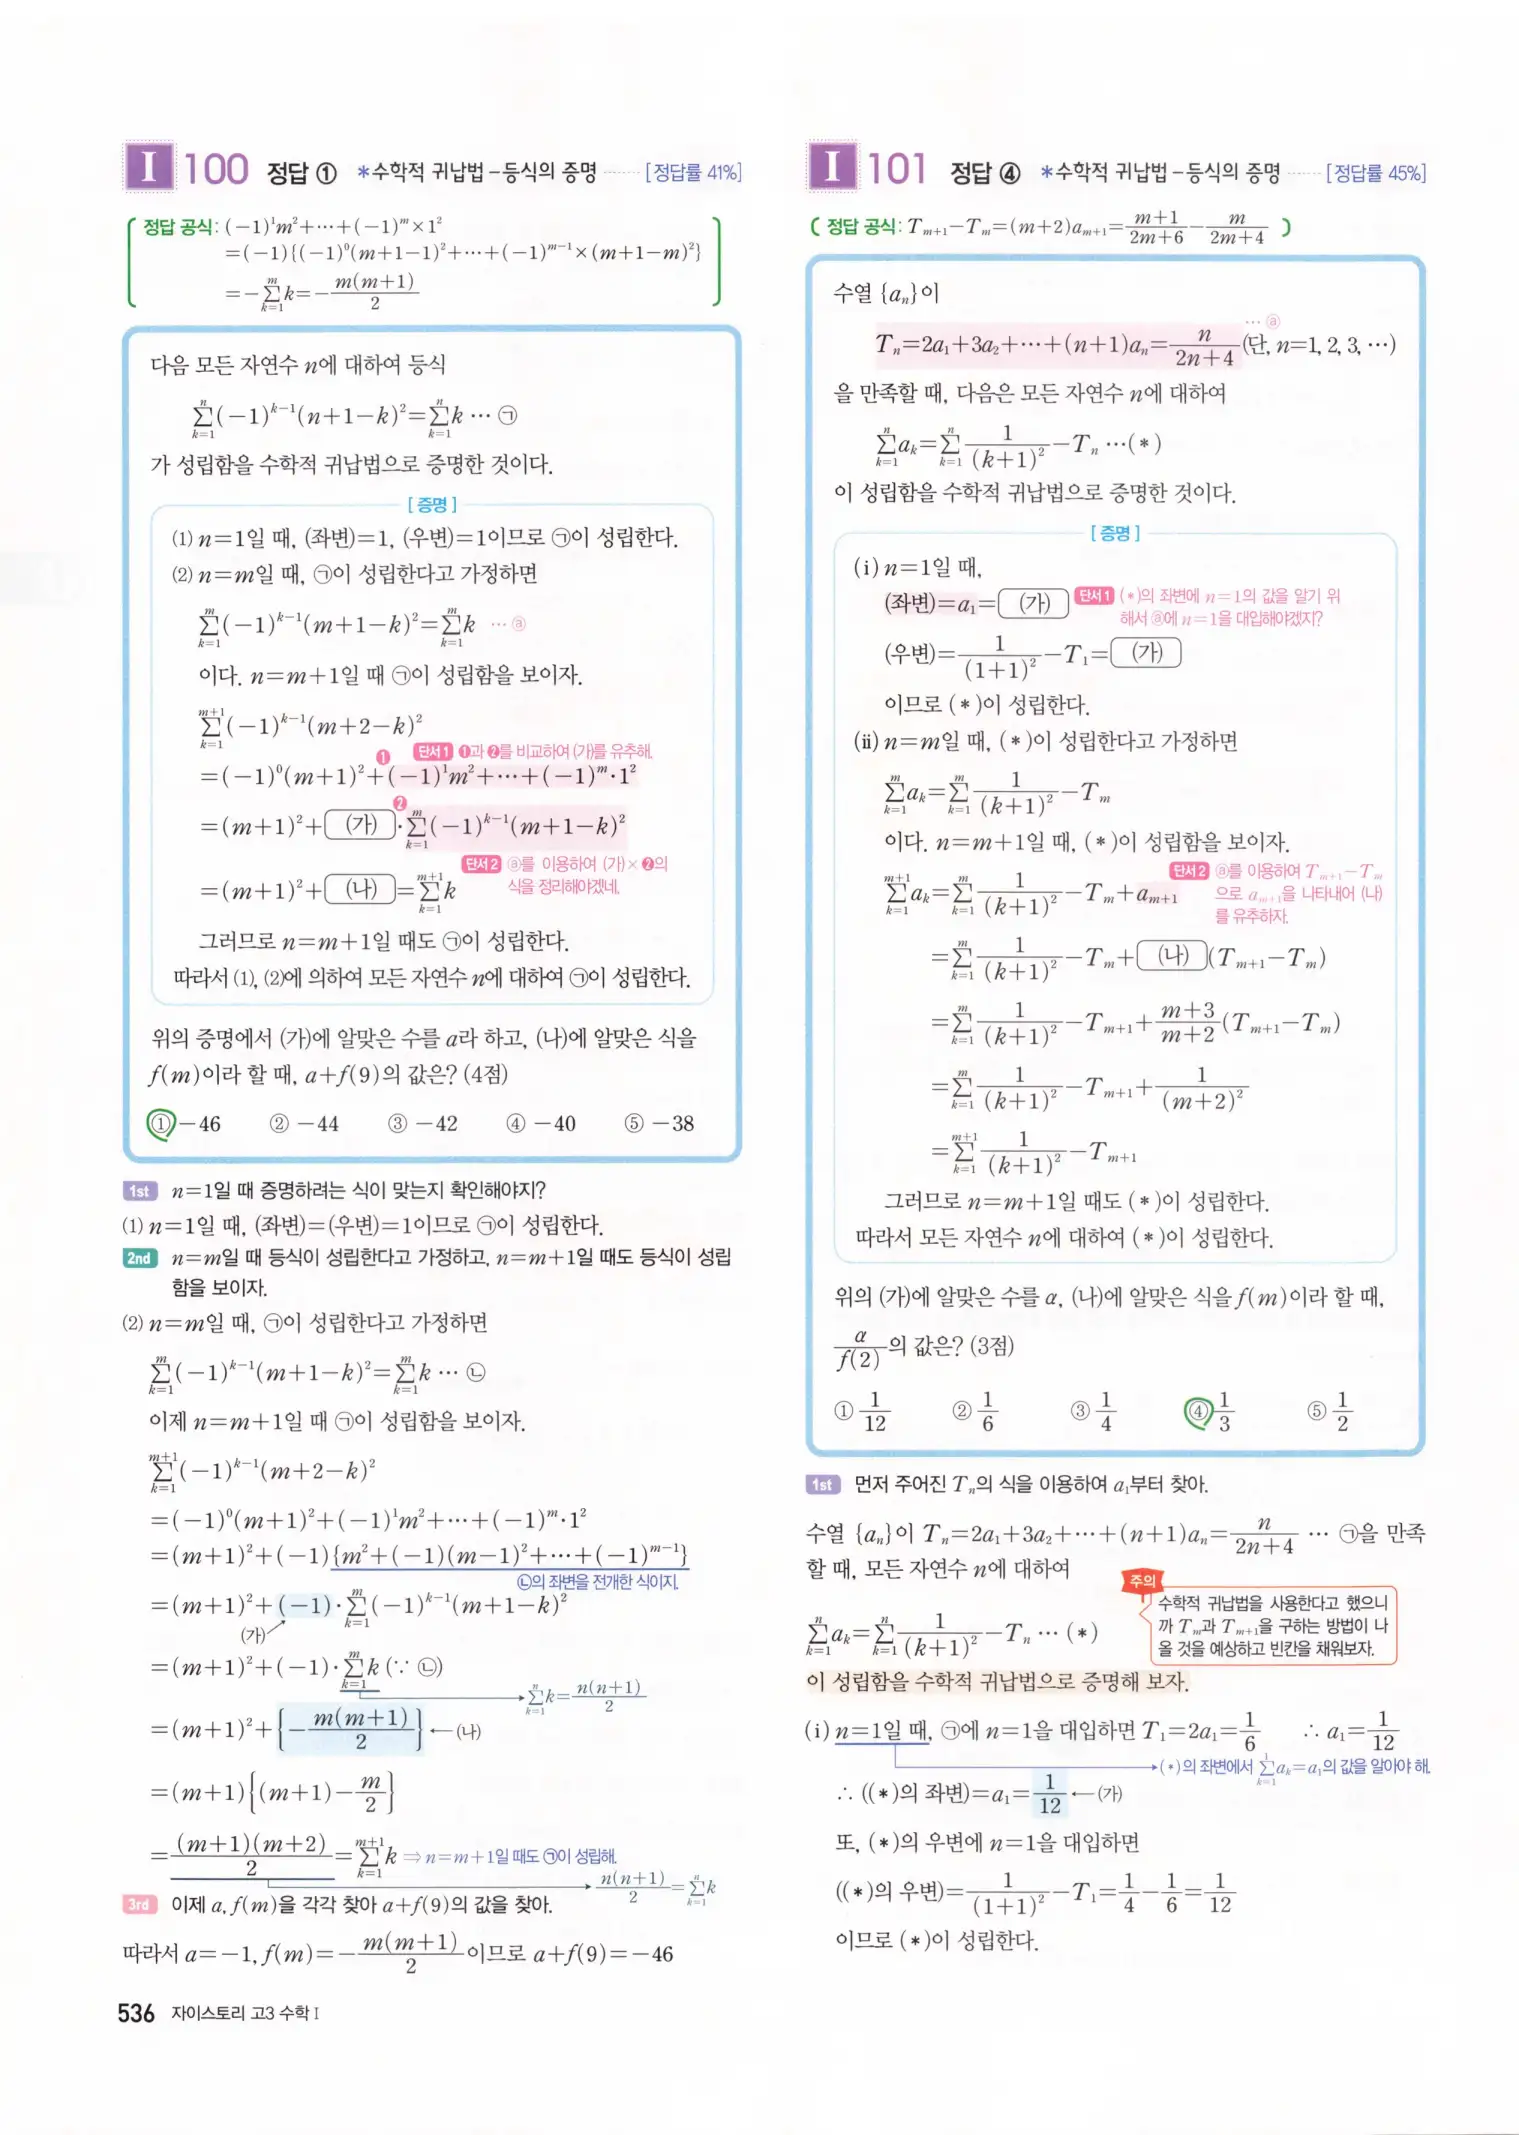 I 100 정답 ① *수학적 귀납법-등식의 증명 ······ [정답률 41%]
정답 공식: (-1)¹m²+···+(-1)ᵐ×1²
=(-1){(-1)⁰(m+1-1)²+···+(-1)ᵐ⁻¹×(m+1-m)²}
=-∑_{k=1}^{m} k=-m(m+1)/2
다음 모든 자연수 n에 대하여 등식
∑_{k=1}^{n} (-1)^{k-1}(n+1-k)²=∑_{k=1}^{n} k ··· ㉠
가 성립함을 수학적 귀납법으로 증명한 것이다.
[증명]
(1) n=1일 때, (좌변)=1, (우변)=1이므로 ㉠이 성립한다.
(2) n=m일 때, ㉠이 성립한다고 가정하면
∑_{k=1}^{m} (-1)^{k-1}(m+1-k)²=∑_{k=1}^{m} k ··· ⓐ
이다. n=m+1일 때 ㉠이 성립함을 보이자.
∑_{k=1}^{m+1} (-1)^{k-1}(m+2-k)²
❶ 단서1 ❶과 ❷를 비교하여 (가)를 유추해.
=(-1)⁰(m+1)²+(-1)¹m²+···+(-1)ᵐ·1²
❷
=(m+1)²+ (가) ·∑_{k=1}^{m} (-1)^{k-1}(m+1-k)²
단서2 ⓐ를 이용하여 (가)×❷의
식을 정리해야겠네.
=(m+1)²+ (나) =∑_{k=1}^{m+1} k
그러므로 n=m+1일 때도 ㉠이 성립한다.
따라서 (1), (2)에 의하여 모든 자연수 n에 대하여 ㉠이 성립한다.
위의 증명에서 (가)에 알맞은 수를 a라 하고, (나)에 알맞은 식을
f(m)이라 할 때, a+f(9)의 값은? (4점)
① -46 ② -44 ③ -42 ④ -40 ⑤ -38
1st n=1일 때 증명하려는 식이 맞는지 확인해야지?
(1) n=1일 때, (좌변)=(우변)=1이므로 ㉠이 성립한다.
2nd n=m일 때 등식이 성립한다고 가정하고, n=m+1일 때도 등식이 성립
함을 보이자.
(2) n=m일 때, ㉠이 성립한다고 가정하면
∑_{k=1}^{m} (-1)^{k-1}(m+1-k)²=∑_{k=1}^{m} k ··· ㉡
이제 n=m+1일 때 ㉠이 성립함을 보이자.
∑_{k=1}^{m+1} (-1)^{k-1}(m+2-k)²
=(-1)⁰(m+1)²+(-1)¹m²+···+(-1)ᵐ·1²
=(m+1)²+(-1){m²+(-1)(m-1)²+···+(-1)^{m-1}}
㉡의 좌변을 전개한 식이지.
=(m+1)²+(-1)·∑_{k=1}^{m} (-1)^{k-1}(m+1-k)²
(가)
=(m+1)²+(-1)·∑_{k=1}^{m} k (∵ ㉡)
∑_{k=1}^{n} k=n(n+1)/2
=(m+1)²+{-m(m+1)/2} ←(나)
=(m+1){(m+1)-m/2}
=(m+1)(m+2)/2=∑_{k=1}^{m+1} k ⇒ n=m+1일 때도 ㉠이 성립해.
n(n+1)/2=∑_{k=1}^{n} k
3rd 이제 a, f(m)을 각각 찾아 a+f(9)의 값을 찾아.
따라서 a=-1, f(m)=-m(m+1)/2이므로 a+f(9)=-46
536 자이스토리 고3 수학 I
I 101 정답 ④ *수학적 귀납법-등식의 증명 ······ [정답률 45%]
정답 공식: T_{m+1}-T_m=(m+2)a_{m+1}=(m+1)/(2m+6)-m/(2m+4)
수열 {aₙ}이
··· ⓐ
Tₙ=2a₁+3a₂+···+(n+1)aₙ=n/(2n+4) (단, n=1, 2, 3, ···)
을 만족할 때, 다음은 모든 자연수 n에 대하여
∑_{k=1}^{n} a_k=∑_{k=1}^{n} 1/(k+1)²-Tₙ ···(*)
이 성립함을 수학적 귀납법으로 증명한 것이다.
[증명]
(i) n=1일 때,
(좌변)=a₁= (가) 단서1 (*)의 좌변에 n=1의 값을 알기 위
해서 ⓐ에 n=1을 대입해야겠지?
(우변)=1/(1+1)²-T₁= (가)
이므로 (*)이 성립한다.
(ii) n=m일 때, (*)이 성립한다고 가정하면
∑_{k=1}^{m} a_k=∑_{k=1}^{m} 1/(k+1)²-T_m
이다. n=m+1일 때, (*)이 성립함을 보이자.
∑_{k=1}^{m+1} a_k=∑_{k=1}^{m} 1/(k+1)²-T_m+a_{m+1}
단서2 ⓐ를 이용하여 T_{m+1}-T_m
으로 a_{m+1}을 나타내어 (나)
를 유추하자.
=∑_{k=1}^{m} 1/(k+1)²-T_m+ (나) (T_{m+1}-T_m)
=∑_{k=1}^{m} 1/(k+1)²-T_{m+1}+(m+3)/(m+2)(T_{m+1}-T_m)
=∑_{k=1}^{m} 1/(k+1)²-T_{m+1}+1/(m+2)²
=∑_{k=1}^{m+1} 1/(k+1)²-T_{m+1}
그러므로 n=m+1일 때도 (*)이 성립한다.
따라서 모든 자연수 n에 대하여 (*)이 성립한다.
위의 (가)에 알맞은 수를 α, (나)에 알맞은 식을 f(m)이라 할 때,
α/f(2)의 값은? (3점)
① 1/12 ② 1/6 ③ 1/4 ④ 1/3 ⑤ 1/2
1st 먼저 주어진 Tₙ의 식을 이용하여 a₁부터 찾아.
수열 {aₙ}이 Tₙ=2a₁+3a₂+···+(n+1)aₙ=n/(2n+4) ··· ㉠을 만족
할 때, 모든 자연수 n에 대하여
주의
수학적 귀납법을 사용한다고 했으니
까 T_m과 T_{m+1}을 구하는 방법이 나
올 것을 예상하고 빈칸을 채워보자.
∑_{k=1}^{n} a_k=∑_{k=1}^{n} 1/(k+1)²-Tₙ ··· (*)
이 성립함을 수학적 귀납법으로 증명해 보자.
(i) n=1일 때, ㉠에 n=1을 대입하면 T₁=2a₁=1/6 ∴ a₁=1/12
(*)의 좌변에서 ∑_{k=1}^{1} a_k=a₁의 값을 알아야 해.
∴ ((*)의 좌변)=a₁=1/12 ←(가)
또, (*)의 우변에 n=1을 대입하면
((*)의 우변)=1/(1+1)²-T₁=1/4-1/6=1/12
이므로 (*)이 성립한다.